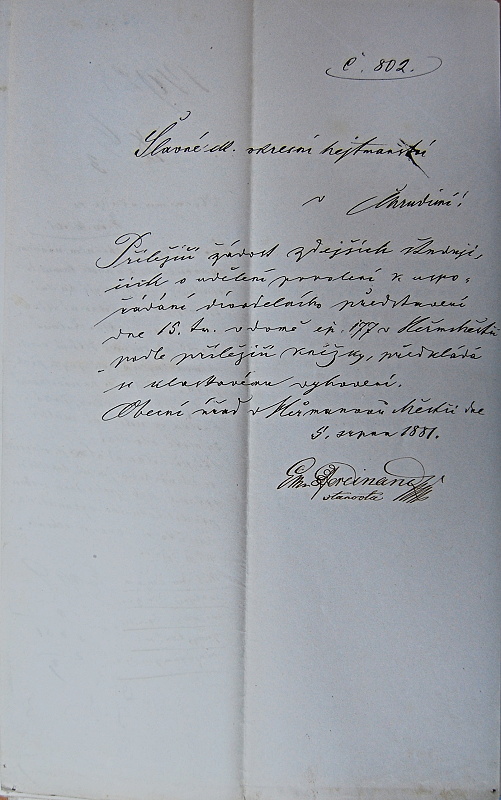 Č. 802.
Slavné c.k. okresní hejtmanství
v Chrudimi!
Příležící žádost zdejších studují-
cích o udělení povolení k uspo-
řádání divadelního představení
dne 15. t.m. v domě čp. 177 v Heřmměstci
podle příležící knížky, předkládá
se k laskavému vyhovení.
Obecní úřad v Heřmanově Městci dne
5. srpna 1881.
Ferdinand
starosta